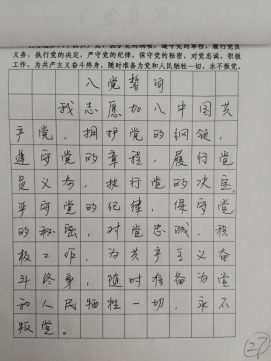 义务，执行党的决定，严守党的纪律，保守党的秘密，对党忠诚，积极
工作，为共产主义奋斗终身，随时准备为党和人民牺牲一切，永不叛党。
入党誓词
我志愿加入中国共
产党，拥护党的纲领，
遵守党的章程，履行党
员义务，执行党的决定，
严守党的纪律，保守党
的秘密，对党忠诚，积
极工作，为共产主义奋
斗终身，随时准备为党
和人民牺牲一切，永不
叛党。
27